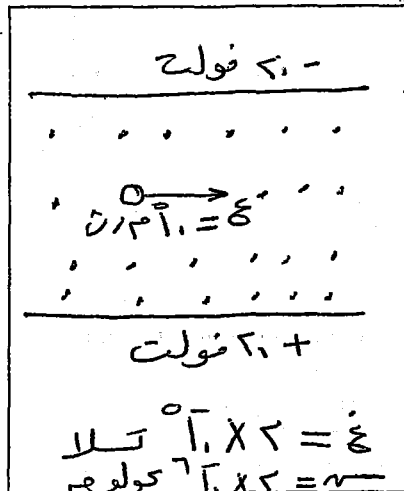 - ٢٠ فولت
ع = م/ث
+ ٢٠ فولت
غ = ٢ × ١٠⁻⁵ تسلا
= ٢ × ١٠⁻⁶ كولوم